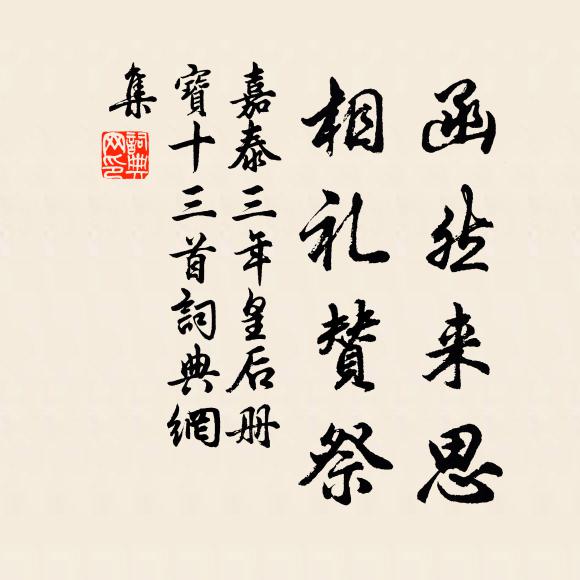 函然来思
相礼赞祭
嘉泰三年皇后册
寳十三首詞典網
集
詞典網印